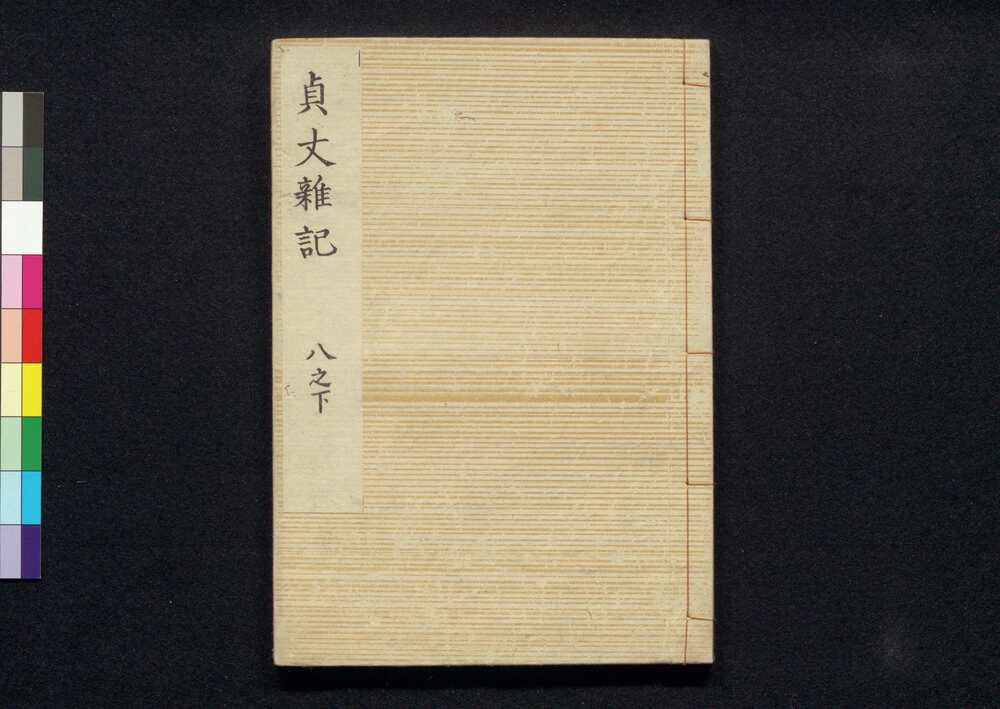 貞丈雜記
八之下